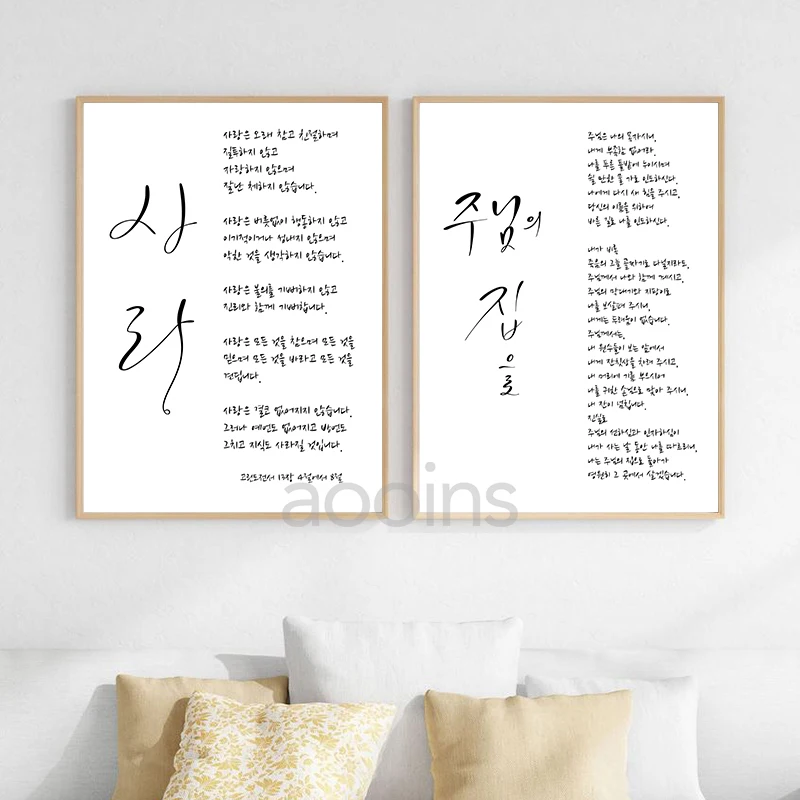 사
랑
사랑은 오래 참고 친절하며
질투하지 않고
자랑하지 않으며
잘난 체하지 않습니다.
사랑은 버릇없이 행동하지 않고
이기적이거나 성내지 않으며
악한 것을 생각하지 않습니다.
사랑은 불의를 기뻐하지 않고
진리와 함께 기뻐합니다.
사랑은 모든 것을 참으며 모든 것을
믿으며 모든 것을 바라고 모든 것을
견딥니다.
사랑은 결코 없어지지 않습니다.
그러나 예언도 없어지고 방언도
그치고 지식도 사라질 것입니다.
고린도전서 13장 4절에서 8절
주님의
집
으로
주님은 나의 목자시니,
내게 부족함 없어라.
나를 푸른 풀밭에 누이시며
쉴 만한 물 가로 인도하신다.
나에게 다시 새 힘을 주시고,
당신의 이름을 위하여
바른 길로 나를 인도하신다.
내가 비록
죽음의 그늘 골짜기로 다닐지라도,
주님께서 나와 함께 계시고,
주님의 막대기와 지팡이로
나를 보살펴 주시니,
내게는 두려움이 없습니다.
주님께서는,
내 원수들이 보는 앞에서
내게 잔칫상을 차려 주시고,
내 머리에 기름 부으시어
나를 귀한 손님으로 맞아 주시니,
내 잔이 넘칩니다.
진실로
주님의 선하심과 인자하심이
내가 사는 날 동안 나를 따르리니,
나는 주님의 집으로 돌아가
영원히 그 곳에서 살겠습니다.
aooins